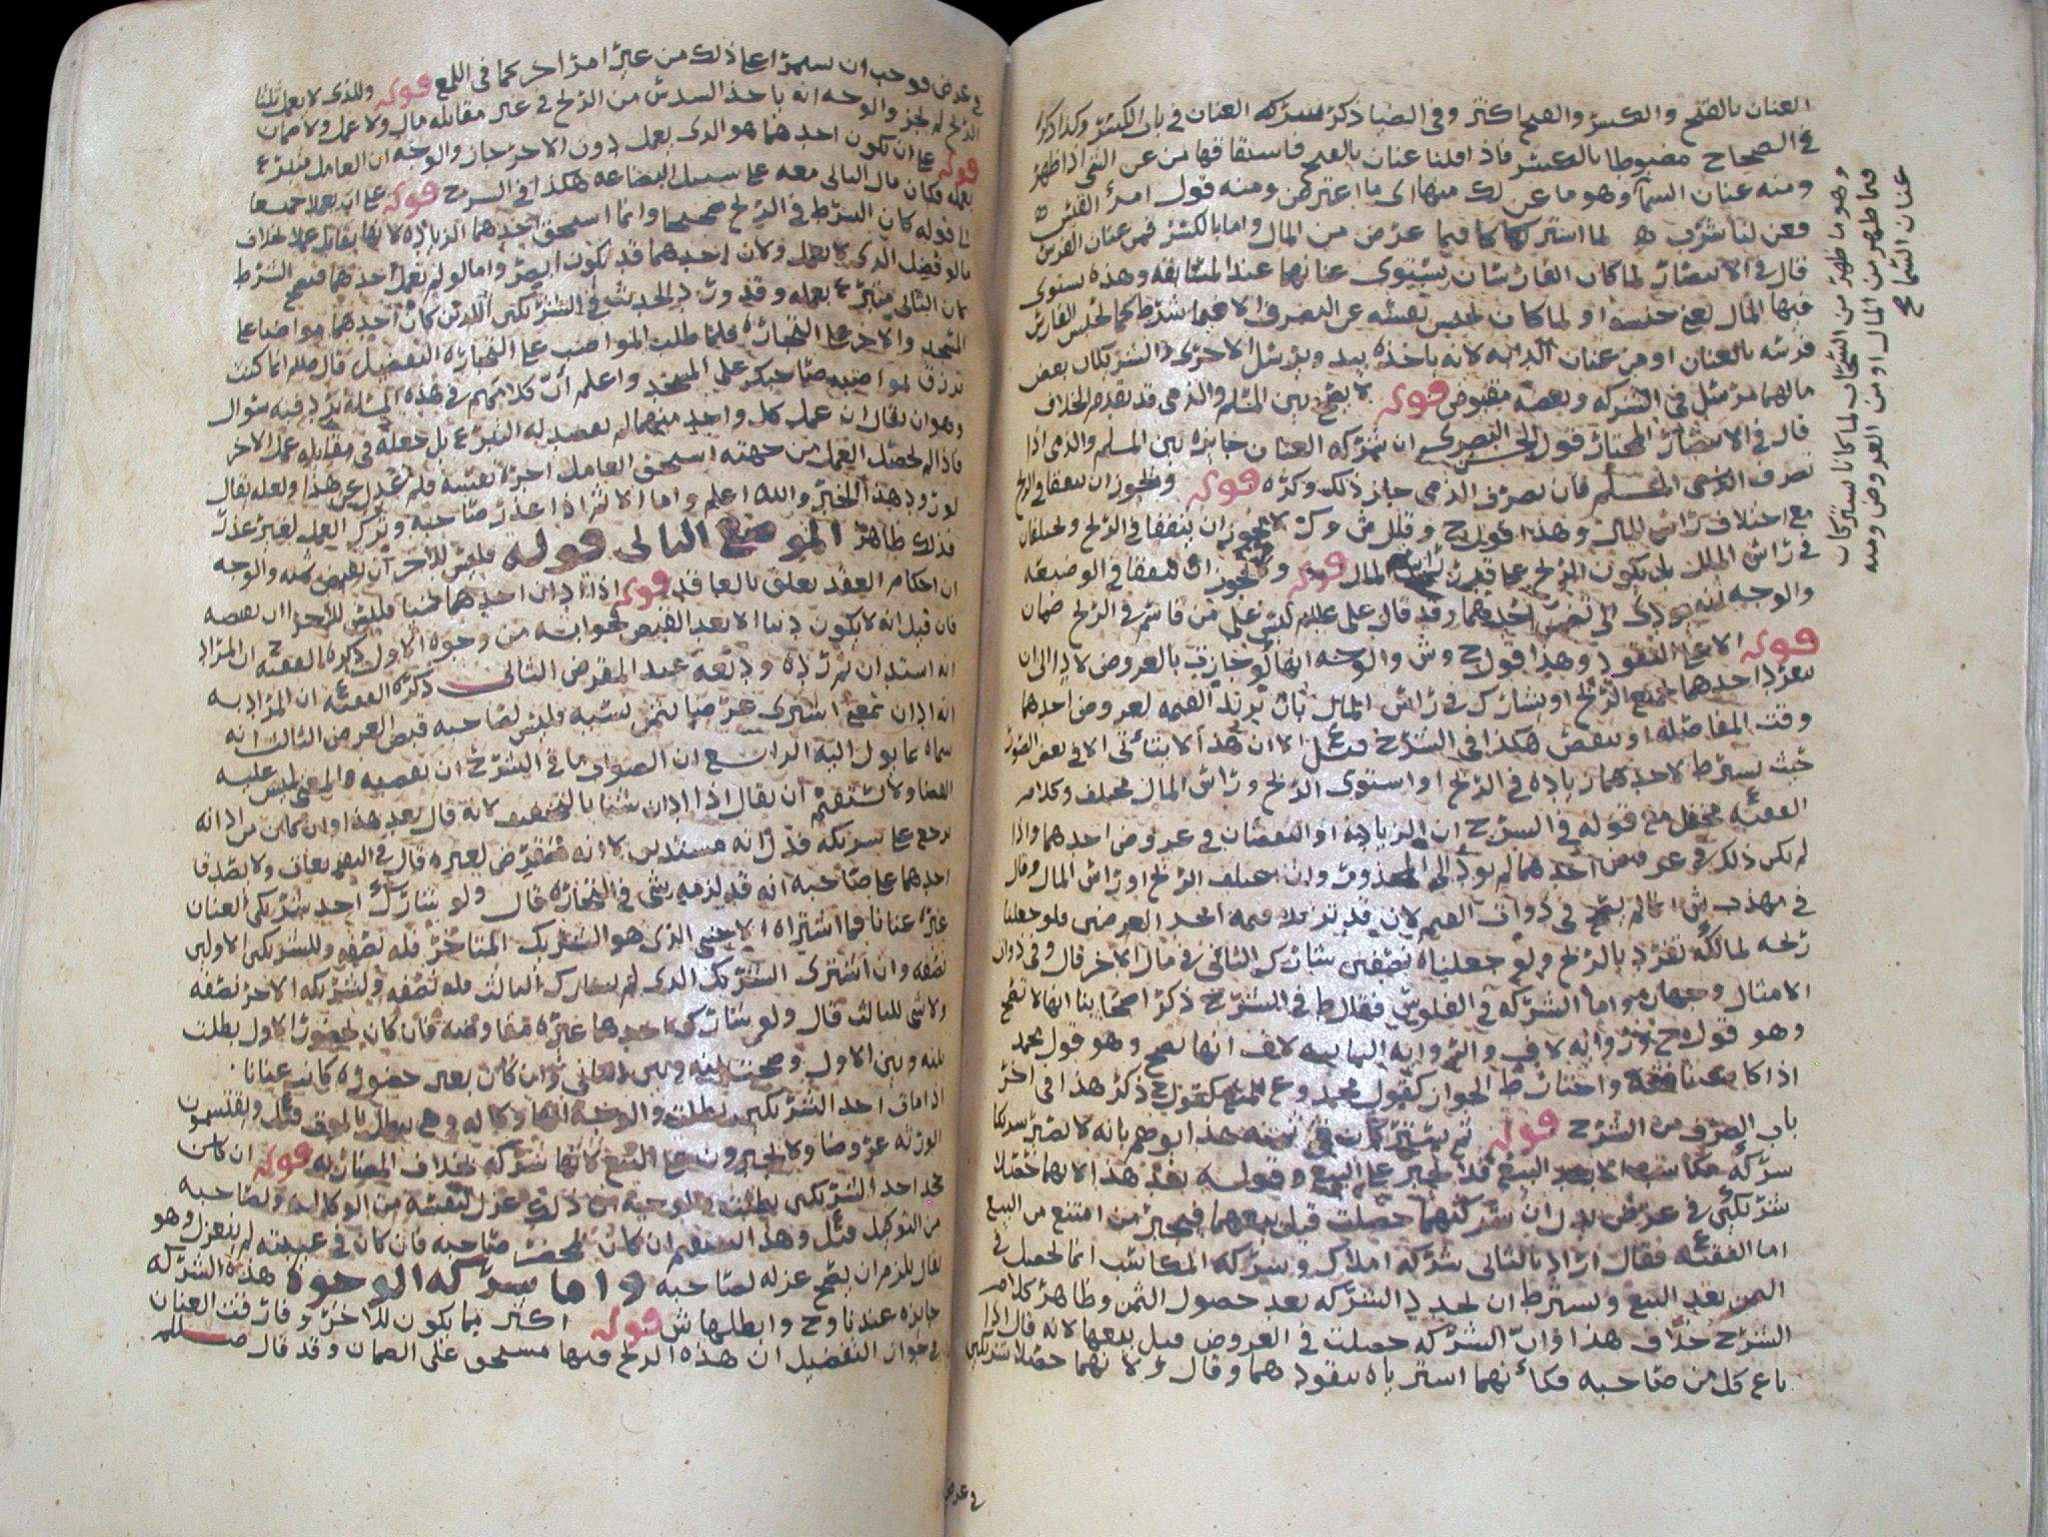 العنان بالفتح والكسر والفتح اكثر وفي الضيا ذكر شركه العنان في باب الكسر وكذا ذكره
في الصحاح مضبوطا بالكسر فاذا قلنا عنان بالفتح فاشتقاقها من عن الشي اذا ظهر
ومنه عنان السما وهو ما عن لك منها اى ما اعترض ومنه قول امرؤ القيس
فعن لنا سرب لما اشتركا فيما عرض من المال واما بالكسر فمن عنان الفرس
قال في الانتصار لما كان الفارسان يستوى عنانهما عند المسابقه وهذه يستوى
فيها المال بغير جنسه او لما كان يحبس نفسه عن التصرف الا فيما شرط كما يحبس الفارس
فرسه بالعنان او من عنان الدابه لانه ياخذه بيد ويرسل الاخرى والشريكان بعض
مالهما مرسل في الشركه وبعضه مقبوض قوله لا يصح بين المسلم والذمى قد تقدم الخلاف
قال في الانتصار المختار قول الحسن البصرى ان شركه العنان جايزه بين المسلم والذمى اذا
تصرف المسلم فان تصرف الذمى جاز ذلك وكره قوله ويجوز ان يتفقا في الربح
مع اختلاف راس المال وهذا قول ح وقال ش وك لا يجوز ان يتفقا في الربح ويختلفان
في راس المال بل يكون الربح على قدر راس المال قوله ولا يجوز ان يتفقا في الوضيعه
والوجه انه يودى الى تضمين احدهما وقد قال على علم ليس على من قاسم في الربح ضمان
قوله الا على النقود وهذا قول ح وش والوجه انها لو جازت بالعروض لادا الى ان
ينفرد احدهما بجميع الربح او يشارك في راس المال بان تزيد القيمه لعروض احدهما
وقت المفاصله او تنقص هكذا في الشرح الا ان هذا لا يتاتى الا في بعض الصور
حيث يشرط لاحدهما زياده في الربح او استوى الربح وراس المال مختلف وكلام
الفقيه مع قوله في الشرح ان الزياده او النقصان في عروض احدهما واذا
لم يكن ذلك في عروض احدهما لم يود الى المحذور وان اختلف الربح او راس المال وقال
في مهذب ش انه لم يصح في ذوات القيم لانه قد تزيد قيمه احد العرضين فلو جعلنا
ربحه لمالكه تفرد بالربح ولو جعلناه نصفين شارك الثاني في مال الاخر قال وفي ذوات
الامثال وجهان واما الشركه في الفلوس فقال ط في الشرح ذكر اصحابنا انها لا تصح
وهو قول ح وروايه لاف والروايه الثانيه لاف انها تصح وهو قول محمد
اذا كانت نافقه واختار ط الجواز كقول محمد وع المنع كقول ح ذكر هذا في اخر
باب الصرف من الشرح قوله ثم يشتركان في ثمنه هذا يوهم بانه لا تصير شركا
شركه مكاسب الا بعد البيع فلا يجبر على البيع وقوله بعد هذا لانهما حصلا
شريكين في عرض يدل ان شركتهما حصلت قبل بيعهما فيجبر من امتنع من البيع
اما الفقيه فقال اراد بالثاني شركه املاك وشركه المكاسب انما تحصل في
الثمن بعد البيع ويشترط ان يجدد الشركه بعد حصول الثمن وظاهر كلام
الشرح خلاف هذا وان الشركه حصلت في العروض قبل بيعها لانه قال اذا
باع كل من صاحبه فكأنهما اشترياه بنقودهما وقال ولانهما حصلا شريكين
وهو ما ظهر من السحاب لما كانا اشتركا
فيما ظهر من المال او من العروض ومنه
عنان السما ح
في عرض
في عرض فوجب ان يستمرا على ذلك من غير امر اخر كما في اللمع قوله وللذى لا يعمل ثلثا
الربح لم يجز والوجه انه ياخذ السدس من الربح في غير مقابله مال ولا عمل ولا ضمان
قوله على ان يكون احدهما هو الذى يعمل دون الاخر جاز والوجه ان العامل متبرع
بعمله فكان مال الثاني معه على سبيل البضاعه هكذا في الشرح قوله على ان يعملا جميعا
الى قوله كان الشرط في الربح صحيحا وانما استحق احدهما الزياده لانها بمقابل عمل بخلاف
ما لو فضل الذى لا يعمل ولان احدهما قد يكون ابصر واما لو لم يعمل احدهما فيصح الشرط
كان الثاني متبرع بعمله وقد ورد الحديث في الشريكين اللذين كان احدهما مواضبا على
المسجد والاخر على التجاره فلما طلب المواضب على التجاره التفضيل قال صلم انما كنت
ترزق لمواضبه صاحبك على المسجد واعلم ان كلامهم في هذه المسئله يرد فيه سؤال
وهو ان يقال ان عمل كل واحد منهما لم يقصد به التبرع بل جعله في مقابله عمل الاخر
فاذا لم يحصل العمل من جهته استحق العامل اجرة نفسه فلم عدل عن هذا ولعله يقال
لورود هذا الخبر والله اعلم واما الاثم اذا عذر صاحبه وترك العمل لغير عذر
فذلك ظاهر الموضع الثاني قوله فليس للاخر ان يقبض ثمنه والوجه
ان احكام العقد تعلق بالعاقد قوله اذا ادان احدهما شيا فليس للاخر ان يقبضه
فان قيل انه لا يكون دينا الا بعد القبض فجوابه من وجوه الاول ذكره الفقيه ح ان المراد
انه استدان ثم رده وديعه عند المقرض الثاني ذكره الفقيه ان المراد به
انه ادان بمعنى اشترى عرضا بثمن نسيه وليس لصاحبه قبض العرض الثالث انه
سماه بما يول اليه الرابع ان الصواب ما في الشرح ان نقصيه والمعنى ليس عليه
القضا ولا يستقيم ان يقال اذا ادان شيا بالتخفيف لانه قال بعد هذا وان كان من ادانه
يرجع على شريكه فدل انه مستدين لا انه مقرض لغيره قال في التقرير ولا يصدق
احدهما على صاحبه انه قد لزمه شى في التجاره قال ولو شارك احد شريكى العنان
غيره عنانا فما اشتراه الاجنبى الذى هو الشريك المتاخر فله نصفه وللشريكين الاولين
نصفه وان اشترى الشريك الذى لم يشارك الثالث فله نصفه ولشريكه الاخر نصفه
ولا شى للثالث قال ولو شارك احدهما غيره مفاوضه فان كان بحضور الاول بطلت
بينه وبين الاول وصحت بينه وبين الثاني وان كان بغير حضوره كانت عنانا
اذا مات احد الشريكين بطلت والوجه انها وكاله وهى تبطل بالموت ويقتسمون
الورثه عروضا ولا يجبرون على البيع لانها شركه بخلاف المضاربه قوله ان كان
جحد احد الشريكين بطلت والوجه ان ذلك عزل لنفسه من الوكاله ولصاحبه
من التوكيل وهذا يستقيم ان كان بمحضر صاحبه فان كان في غيبته لم ينعزل وهو
يقال يلزم ان يصح عزله لصاحبه واما شركه الوجوه هذه الشركه
جايزه عندنا وح وابطلها ش قوله اكثر مما يكون للاخر وفارقت العنان
في جواز التفضيل ان هذه الربح فيها مستحق على الضمان وقد قال صلم